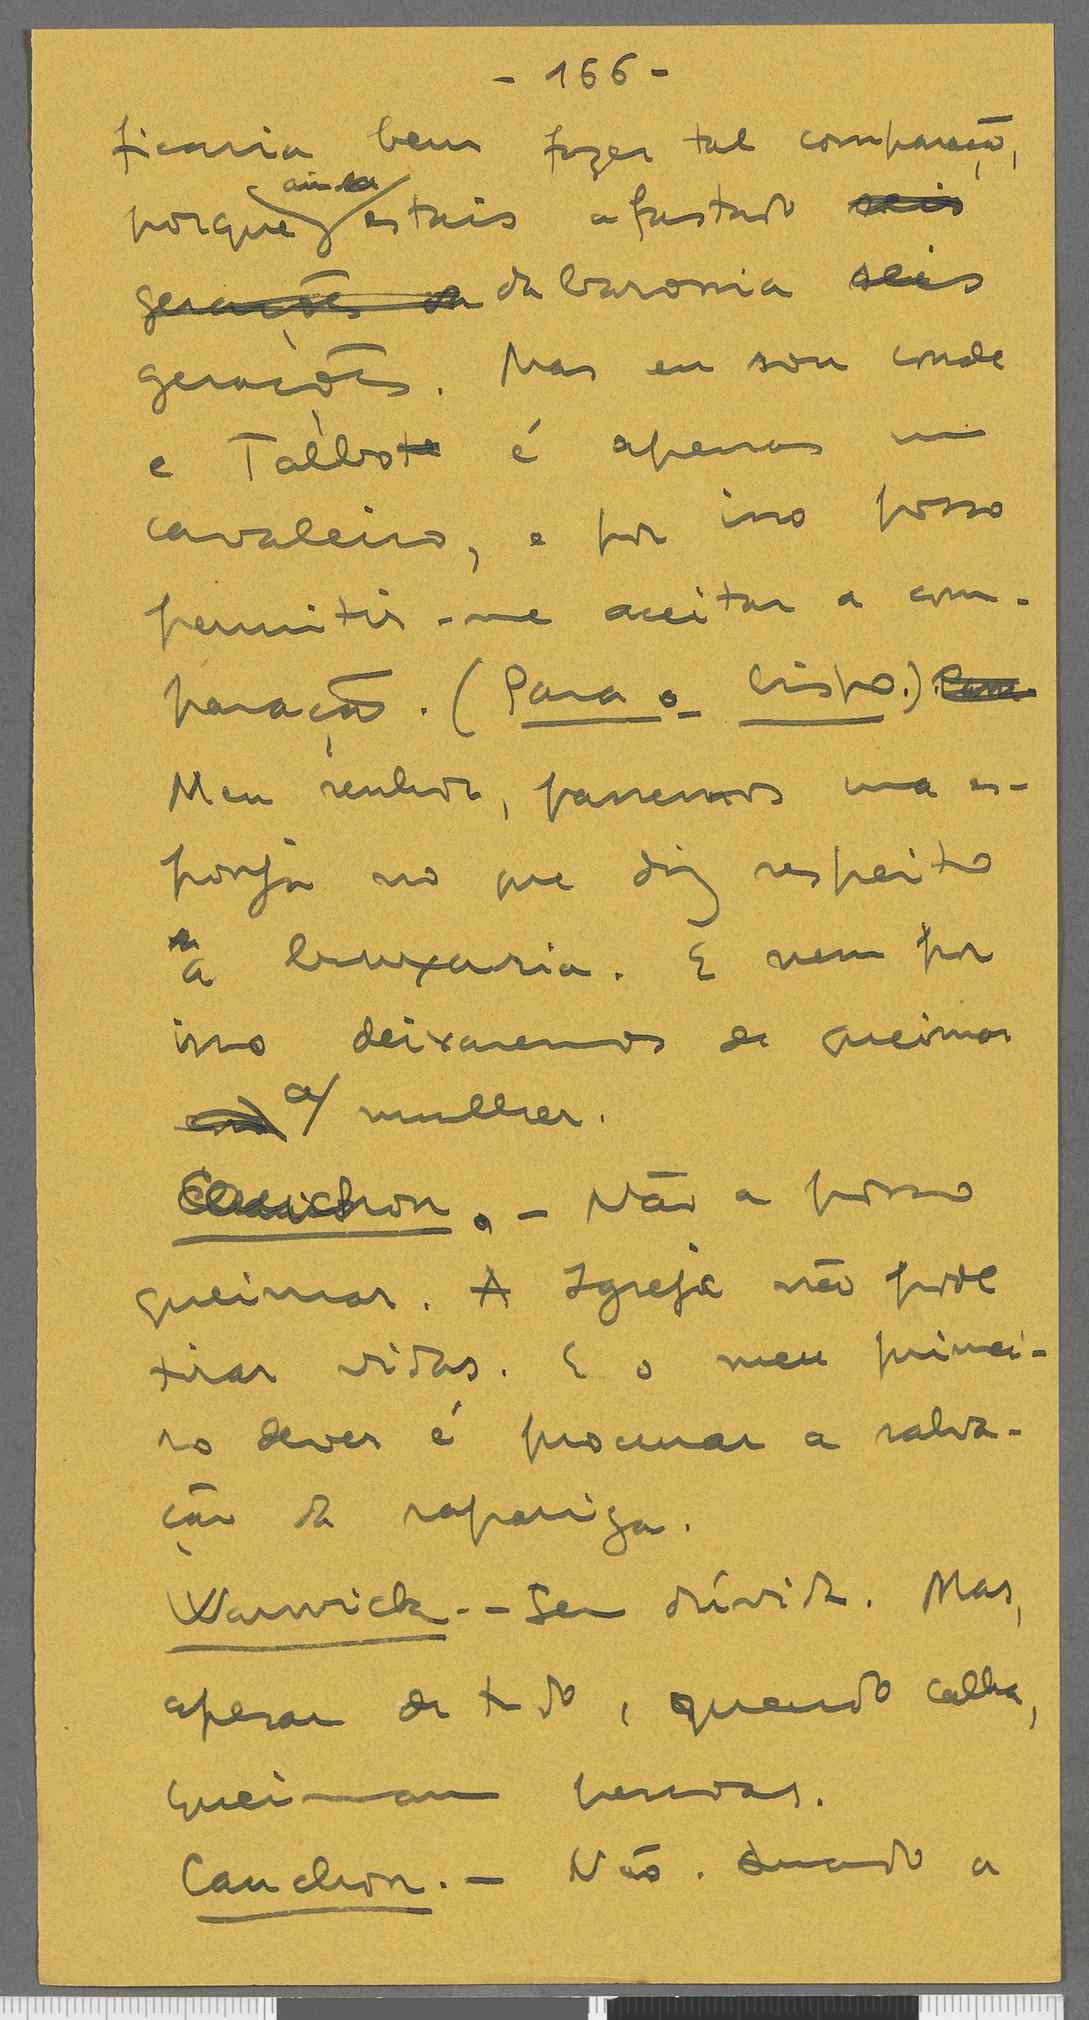 - 166 -
ficaria bem fazer tal comparação,
porque ainda estais afastado seis
gerações da da baronia seis
gerações. Mas eu sou conde
e Talbot é apenas um
cavaleiro, e por isso posso
permitir-me aceitar a com-
paração. (Para o bispo.)
Meu senhor, passemos uma es-
ponja no que diz respeito
à bruxaria. E nem por
isso deixaremos de queimar
a mulher.
Cauchon. - Não a posso
queimar. A Igreja não pode
tirar vidas. E o meu primei-
ro dever é procurar a salva-
ção da rapariga.
Warwick. - Sem dúvida. Mas,
apesar de tudo, quando calha,
queimam pessoas.
Cauchon. - Não. Quando a